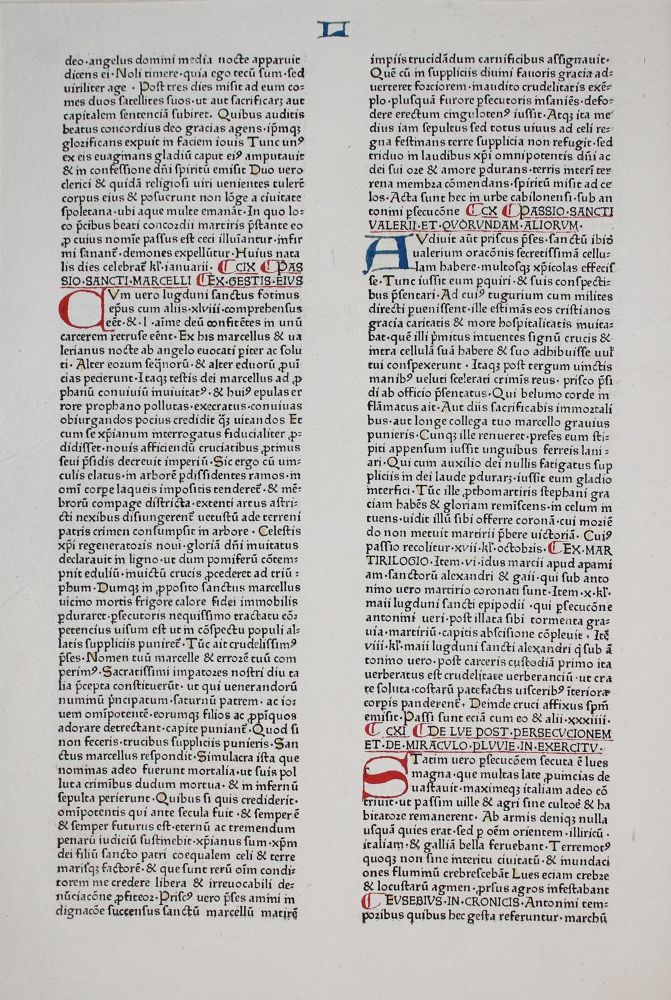 L
deo·angelus domini media nocte apparuit
dicens ei·Noli timere·quia ego tecū sum·sed
uiriliter age·Post tres dies misit ad eum co-
mes duos satellites suos·ut aut sacrificarꝫ aut
capitalem sentenciā subiret·Quibus auditis
beatus concordius deo gracias agens·ip̄mqꝫ
glorificans expuit in faciem iouis Tunc unꝰ
ex eis euaginans gladiū caput eiꝰ amputauit
& in confessione dn̄i spiritū emisit Duo uero
clerici & quidā religiosi uiri uenientes tulerē
corpus eius & posuerunt non lōge a ciuitate
spoletana·ubi aque multe emanāt·In quo lo-
co p̄cibus beati concordii martiris p̄stante eo
ꝓ cuius nomīe passus est ceci illuīantur·infir
mi sananē·demones expellūtur·Huius nata
lis dies celebrat̄ kl̄·ianuarii· CIX PAS
SIO·SANCTI·MARCELLI EX·GESTIS·EIVS
CVm uero lugduni sanctus fotimus
ep̄us cum aliis·xlviii·comprehensus
eēt·&·l·aīme deū confitētes in unū
carcerem retruse eēnt·Ex his marcellus & ua
lerianus nocte ab angelo euocati p̄iter ac solu
ti·Alter eorum seq̄norū·& alter eduorū ꝓui
cias pecierunt·Itaqꝫ testis dei marcellus ad ꝓ
phanū conuiuiū inuitatꝰ·& huiꝰ epulas er
rore prophano pollutas·execratus·conuiuas
obiurgandos pocius credidit qꝫ uitandos Et
cum se xp̄ianum interrogatus fiducialiter ꝓ-
didisset·nouis afficiendū cruciatibus ꝓtinus
seui p̄sidis decreuit imperiū·Sic ergo cū uin-
culis elatus·in arborē p̄dissidentes ramos·in
om̄i corpe laqueis impositis tenderet̄·& mē-
brorū compage districta·extenti artus astri-
cti nexibus disiungerent̄ uetustū ade terreni
patris crimen consumpsit in arbore·Celestis
xp̄i regeneratoris noui·gloriā dn̄i imitatus
declarauit in ligno·ut dum pomiferū cōtem-
pnit eduliū·inuictū crucis ꝓcederet ad triū-
phum·Dumqꝫ in ꝓposito sanctus marcellus
uicino mortis frigore calore fidei immobilis
p̄duraret·p̄secutoris nequissimo tractatu cōꝫ
petencius uisum est ut in cōspectu populi al-
latis suppliciis puniret̄·Tūc ait crudelissimꝰ
p̄ses·Nomen tuū marcelle & errorē tuū com
perimꝰ·Sacratissimi imp̄atores nostri diu ta
lia p̄cepta constituerūt·ut qui uenerandorū
numinū p̄ncipatum·saturnū patrem·ac io-
uem om̄ipotentē·eorumqꝫ filios ac ꝓp̄iquos
adorare detrectant·capite puniant̄·Quod si
non feceris·crucibus suppliciis punieris·San
ctus marcellus respondit·Simulacra ista que
nominas adeo fuerunt mortalia·ut suis pol
luta crimībus dudum mortua·& in infernū
sepulta perierunt·Quibus si quis crediderit·
om̄ipotentis qui ante secula fuit·& semper ē
& semper futurus est·eternū ac tremendum
penarū iudiciū sustinebit·xp̄ianus sum·xp̄m
dei filiū sancto patri coequalem celi & terre
marisqꝫ factorē·& que sunt rerū oīm condi-
torem me credere libera & irreuocabili de-
nūciacōne ꝓfiteoꝛ·Priscꝰ uero p̄ses amini in
dignacōe succensus sanctū marcellū matirē
impiis trucidādum carnificibus assignauit·
Quē cū in suppliciis diuini fauoris gracia ad-
uerteret forciorem·inaudito crudelitatis exē-
plo·plusquā furore p̄secutoris insaniēs·defo-
dere erectum cinguloteñꝰ iussit·Atqꝫ ita me
dius iam sepultus sed totus uiuus ad celi re-
gna festinans terre supplicia non refugit·sed
triduo in laudibus xp̄i omnipotentis dn̄i ac
dei sui oze & amore p̄durans·terris inserī ter
rena membra cōmendans·spiritū misit ad ce
los·Acta sunt hec in urbe cabilonensi·sub an
tonini p̄secucōne CX PASSIO·SANCTI
VALERII·ET·QVORVNDAM·ALIORVM·
AVdiuit aūt priscus p̄ses·sanctū ibiō
ualerium oracōnis secretissimā cellu-
lam habere·multosqꝫ xp̄icolas effecis
se·Tunc iussit eum p̄quiri·& suis conspecti-
bus p̄sentari·Ad cuiꝰ tugurium cum milites
directi puenissent·ille estimās eos cristianos
gracia caritatis & more hospitalitatis inuita-
bat·quē illi p̄mitus intuentes signū crucis &
intra cellulā suā habere & suo adhibuisse uul
tui conspexerunt·Itaqꝫ post tergum uinctis
manibꝰ ueluti scelerati crimīs reus·prisco p̄si
di ab officio p̄sentatus·Qui beluino corde in
flāmatus ait·Aut diis sacrificabis immortali
bus·aut longe collega tuo marcello grauius
punieris·Cunqꝫ ille renueret·preses eum sti-
piti appensum iussit unguibus ferreis lani-
ari·Qui cum auxilio dei nullis fatigatus sup
pliciis in dei laude p̄durarꝫ·iussit eum gladio
interfici·Tūc ille ꝓthomartiris stephani gra
ciam habēs & gloriam remiscens·in celum in
tuens·uidit illū sibi offerre coronā·cui moriē
do non metuit martirii p̄bere uictoriā·Cuiꝰ
passio recolitur·xvii·kl̄·octobris· EX·MAR
TIRILOGIO·Item·vi·idus marcii apud apami
am·sanctorū alexandri & gaii·qui sub anto
nino uero martirio coronati sunt·Item·x·kl̄·
maii lugduni sancti epipodii·qui p̄secucōne
antonini ueri·post illata sibi tormenta gra-
uia·martiriū·capitis abscisione cōpleuit·Itē
viii·kl̄·maii lugduni sancti alexandri q̄ sub ā
tonino uero·post carceris custodiā primo ita
uerberatus est crudelitate uerberanciū·ut cra
te soluta·costarū patefactis uiscerībꝰ īteriora
corpis panderent̄·Deinde cruci affixus sp̄m̄
emisit·Passi sunt eciā cum eo & alii·xxxiiii·
CXI DE LVE POST·PERSECVCIONEM
ET·DE·MIRACVLO·PLVVIE·IN·EXERCITV·
STatim uero p̄secucōem secuta ē lues
magna·que multas late ꝓuincias de
uastauit·maximeqꝫ italiam adeo cō
triuit·ut passim uille & agri sine cultore & ha
bitatore remanerent·Ab armis deniqꝫ nulla
usquā quies erat·sed p oēm orientem·illiricū·
italiam·& galliā bella feruebant·Terremotꝰ
quoqꝫ non sine interitu ciuitatū·& inundaci
ones fluminū crebrescebāt Lues eciam crebre
& locustarū agmen·ꝓrsus agros infestabant
EVSEBIVS·IN·CRONICIS·Antonini tem-
poribus quibus hec gesta referuntur·marchū